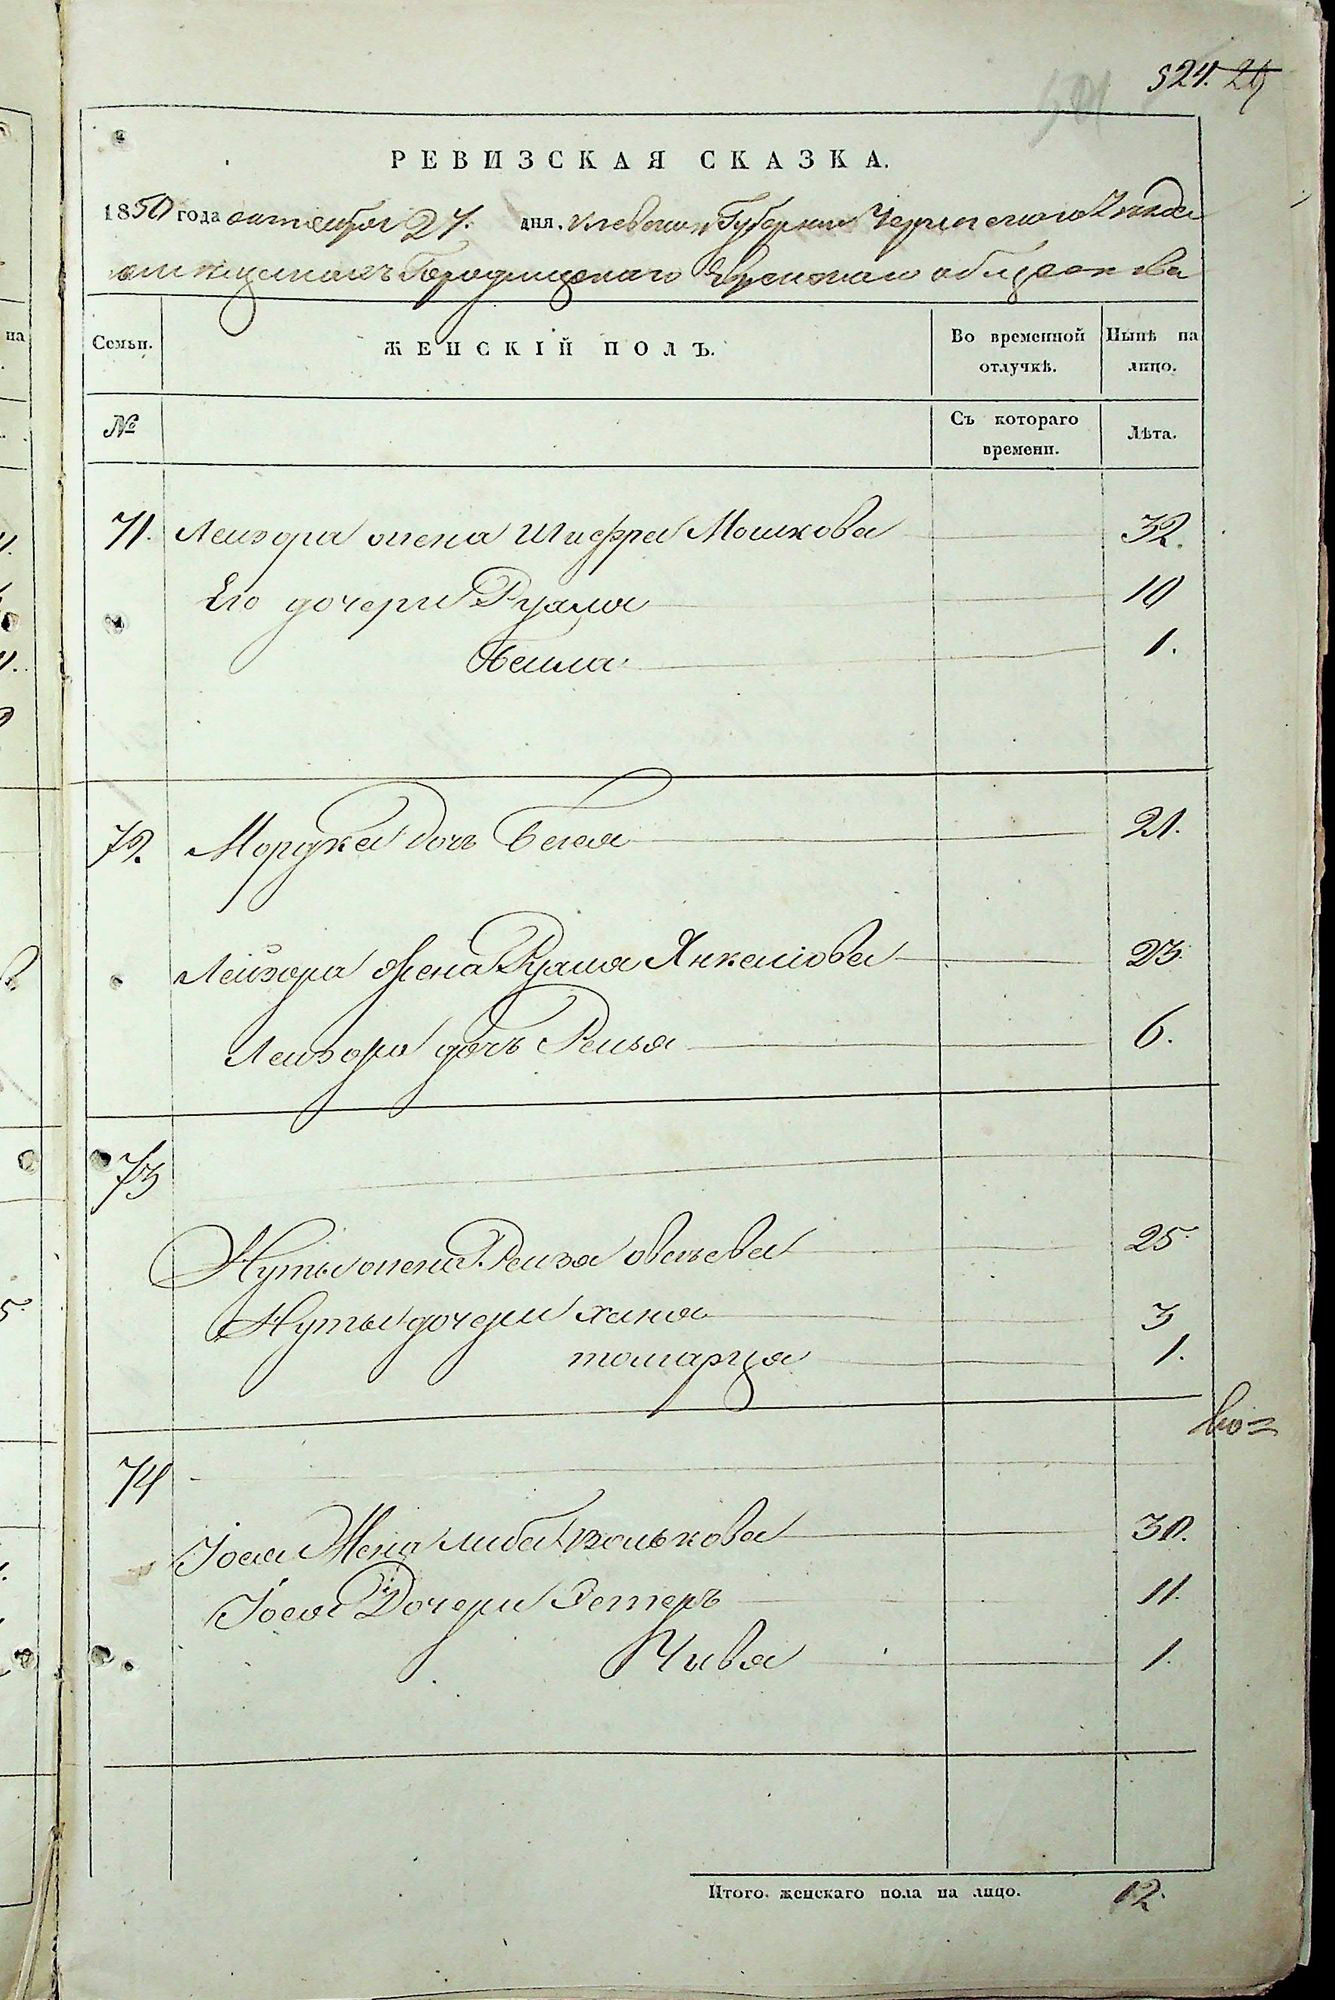 524. 29
РЕВИЗСКАЯ СКАЗКА.
1850 года октября 27. дня. Киевской Губернии Черкаского Уезда
о мещанахъ Городищенского Еврейского общества
Семьи. ЖЕНСКІЙ ПОЛЪ. Во временной отлучкѣ. Нынѣ на лицо.
№ Съ котораго времени. Лѣта.
71. Лейзора жена Шифра Мошкова 32.
Его дочери Рухля 10
Бейла 1.
72. Мордка дочь Бася 21.
Лейзора жена Рухля Янкелiова 23
Лейзора дочь Рейзя 6.
73
Нуты жена Рейза 25
Нуты дочери Хана 3
1.
во=
74
Іося Жена Либа Волькова 30.
Іося Дочери Эстеръ 11.
Чива 1.
Итого женскаго пола на лицо. 12.